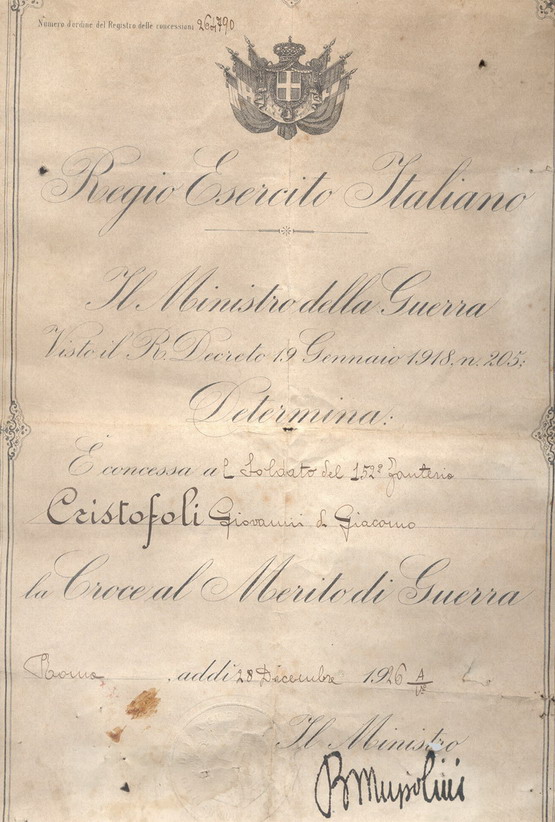 Numero d'ordine del Registro delle concessioni 261790
Regio Esercito Italiano
Il Ministro della Guerra
Visto il R. Decreto 19 Gennaio 1918, n. 205;
Determina:
È concessa al Soldato del 152° Fanteria
Cristofoli Giovanni di Giacomo
la Croce al Merito di Guerra
Roma, addì 28 Decembre 1926
Il Ministro
BMussolini